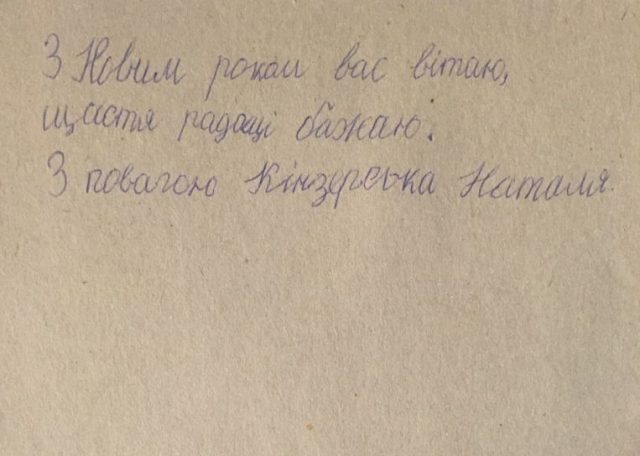 З Новим роком вас вітаю,
щастя радощі бажаю.
З повагою Кінзерська Наталя.